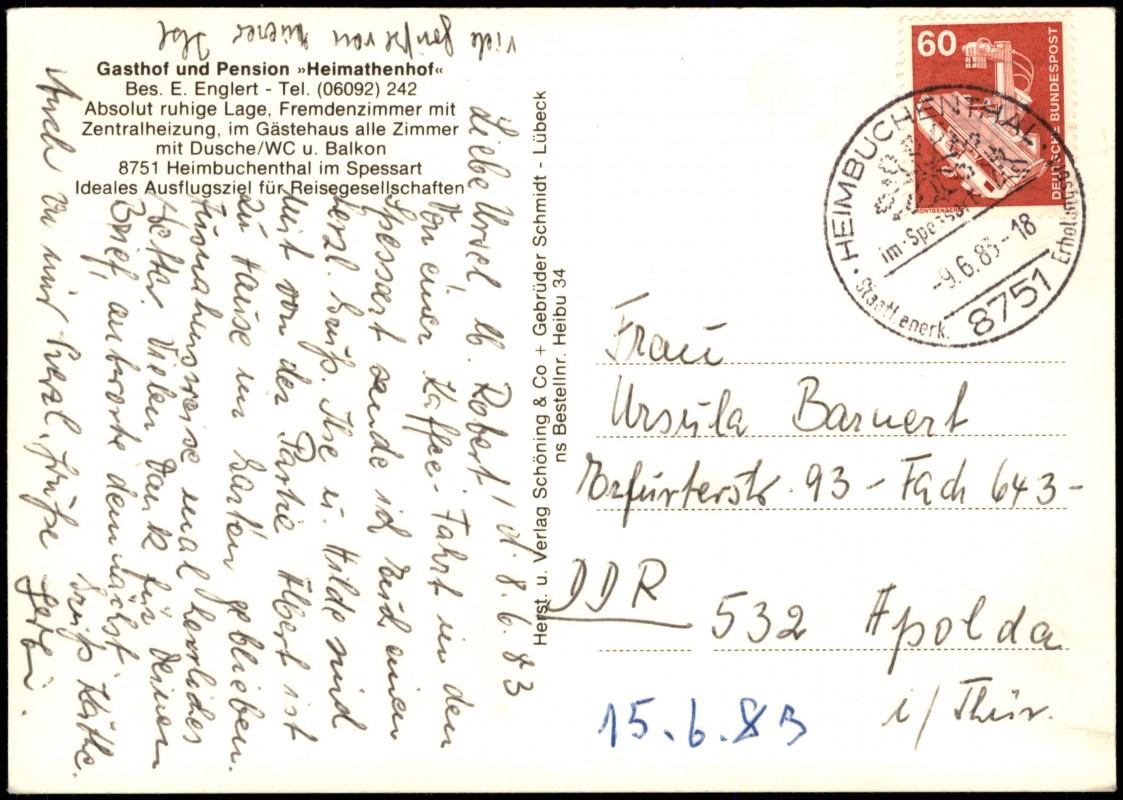 Gasthof und Pension »Heimathenhof«
Bes. E. Englert - Tel. (06092) 242
Absolut ruhige Lage, Fremdenzimmer mit
Zentralheizung, im Gästehaus alle Zimmer
mit Dusche/WC u. Balkon
8751 Heimbuchenthal im Spessart
Ideales Ausflugsziel für Reisegesellschaften
Liebe Ursel, lb. Robert! d. 8.6.83
Von einer Kaffee-Fahrt in den
Spessart sende ich Euch einen
herzl. Gruß. Ilse u. Hilde sind
mit von der Partie Albert ist
zu Hause im Garten geblieben.
Ausnahmsweise mal herrliches
Wetter. Vielen Dank für Deinen
Brief, antworte demnächst, Gruß Käthe.
Auch von mir herzl. Grüße
viele Grüße von
Herst. u. Verlag Schöning & Co + Gebrüder Schmidt - Lübeck
ns Bestellnr. Heibu 34
60
DEUTSCHE BUNDESPOST
HEIMBUCHENTHAL
im Spessart
-9.6.83-18
8751
Staatl. anerk. Erholungsort
Frau
Ursula Barnert
Erfurterstr. 93 - Fach 643 -
DDR
532 Apolda
i/Thür.
15.6.83